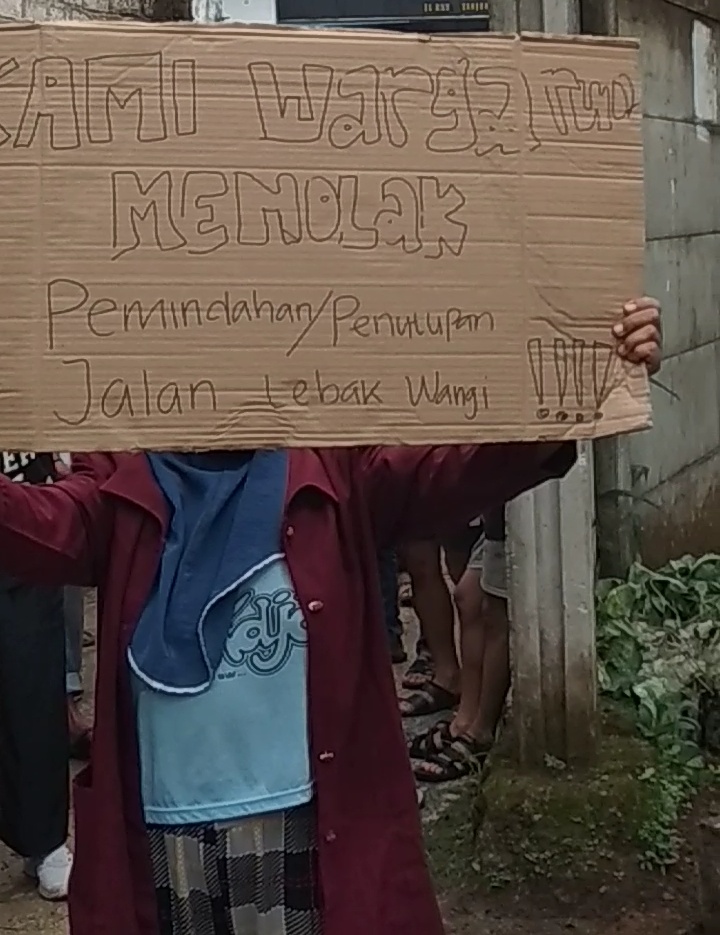 KAMI Warga RW02
MENOLAK
Pemindahan/Penutupan
Jalan Lebak Wangi !!!!